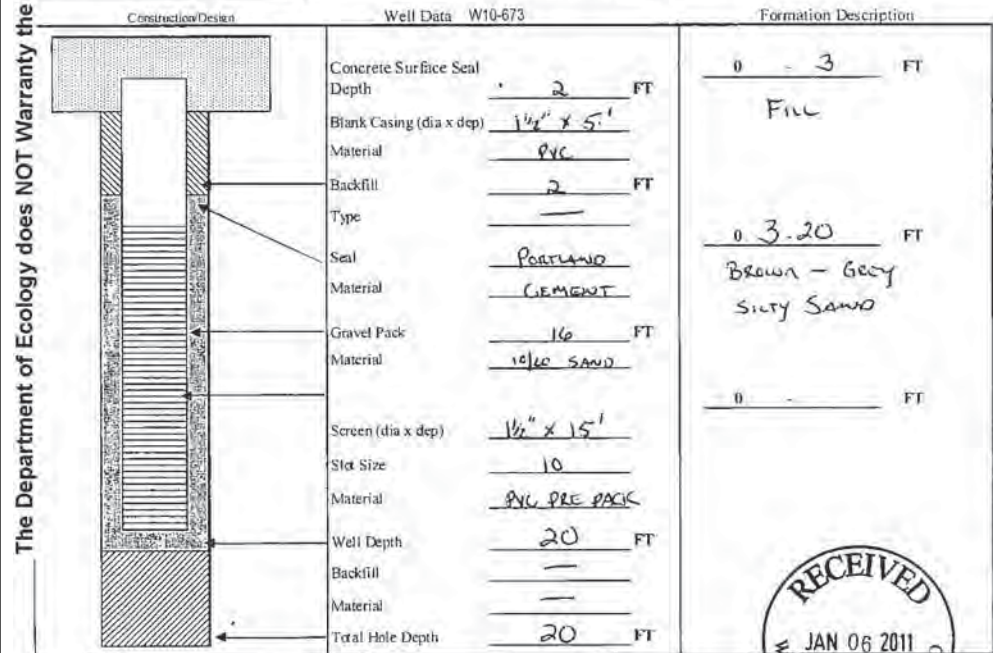 The Department of Ecology does NOT Warranty the
Construction/Design
Well Data W10-673
Formation Description
Concrete Surface Seal
Depth 2 FT
Blank Casing (dia x dep) 1 1/2" x 5'
Material PVC
Backfill 2 FT
Type —
Seal PORTLAND
Material CEMENT
Gravel Pack 16 FT
Material SAND
Screen (dia x dep) 1 1/2" x 15'
Slot Size 10
Material PVC PRE PACK
Well Depth 20 FT
Backfill —
Material —
Total Hole Depth 20 FT
0 - 3 FT
FILL
0 3-20 FT
BROWN - GREY
SILTY SAND
0 - FT
RECEIVED
JAN 06 2011